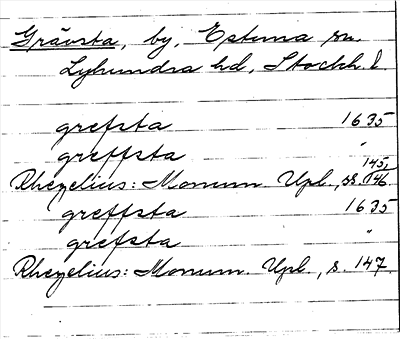 Grävsta, by, Estuna sn.
Lyhundra hd, Stockh. l.
grefsta 1635
greffsta "
Rhezelius: Monum. Upl., ss. 145, 146.
greffsta 1635
grefsta "
Rhezelius: Monum. Upl., s. 147.